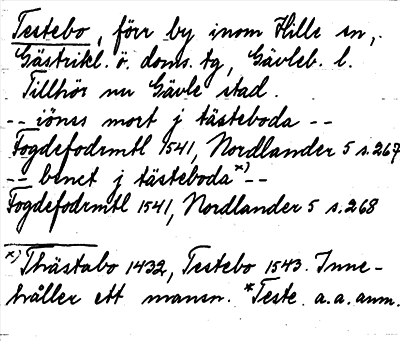 Testebo, förr by inom Hille sn,
Gästrikl. ö. doms. tg, Gävleb. l.
Tillhör nu Gävle stad.
-- jönss mort j tästeboda --
Fogdefodrmtl 1541, Nordlander 5 s.267
-- benct j tästeboda x) --
Fogdefodrmtl 1541, Nordlander 5 s.268
x) Thästabo 1432, Testebo 1543. Inne-
håller ett mansn. *Teste a.a. anm.